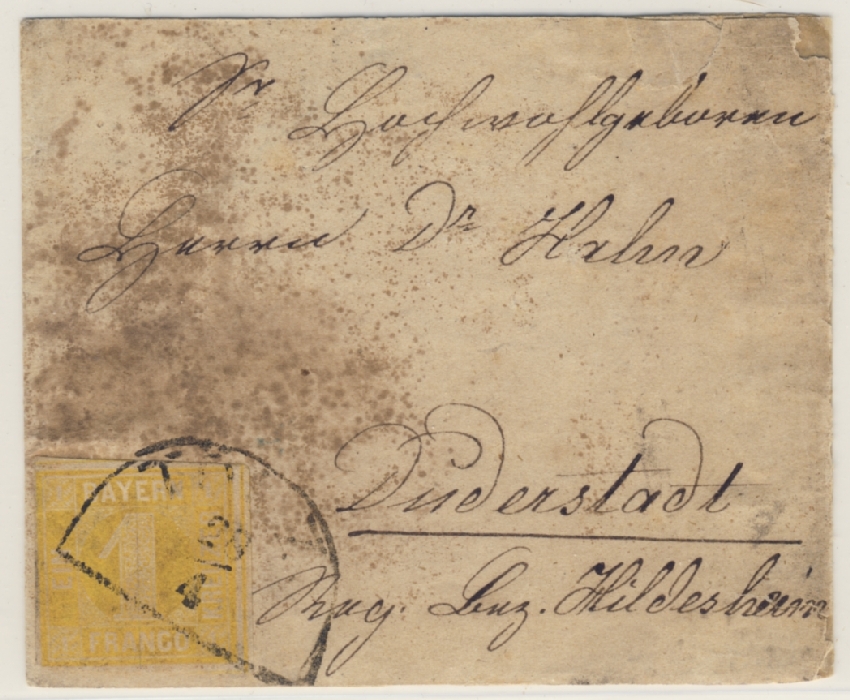 Sr Hochwohlgeboren
Herrn Dr Helm
Duderstadt
Reg. Bez. Hildesheim
BAYERN
1
FRANCO
28
4